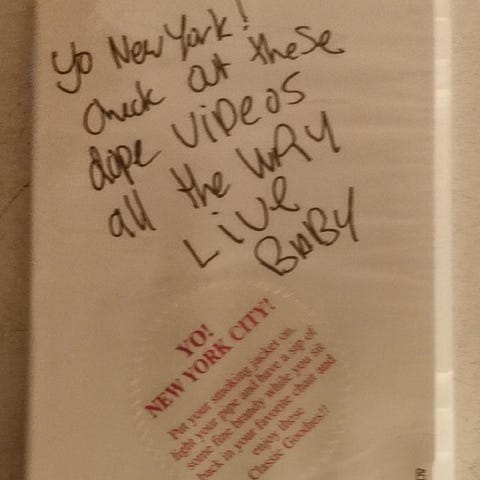 Yo New York!
Check out these
dope VIDEOS
all the WAY
LIVE
BABY
YO!
NEW YORK CITY!
Put your smoking jacket on,
light your pipe and have a sip of
some fine brandy while you sit
back in your favorite chair and
enjoy these
Classic Goodies!!